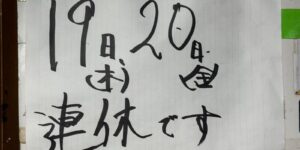 19日(木)20日(金)
連休です